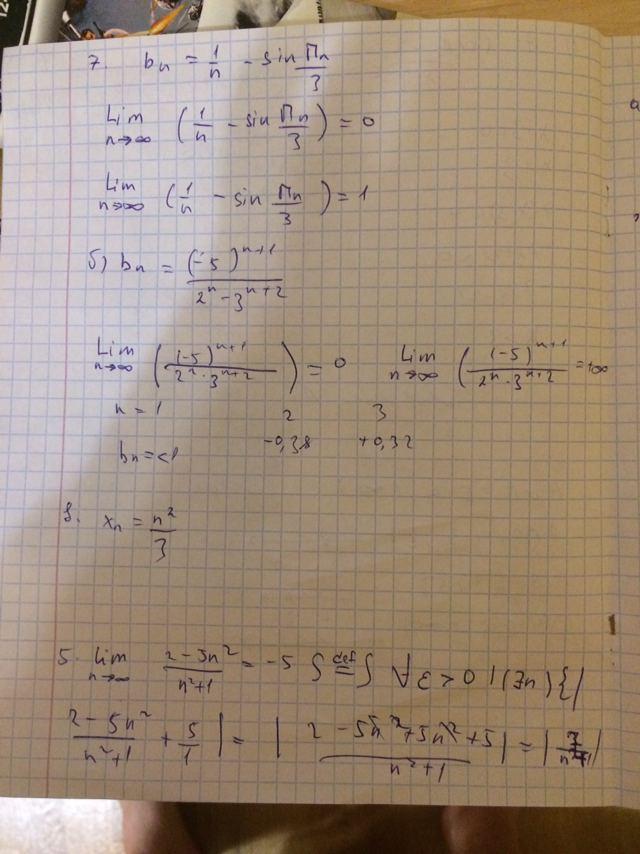 7. bₙ = 1/n - sin Пn/3
Lim n→∞ (1/n - sin Пn/3) = 0
Lim n→∞ (1/n - sin Пn/3) = 1
б) bₙ = (-5)ⁿ⁺¹/(2ⁿ - 3ⁿ⁺²)
Lim n→∞ ((-5)ⁿ⁺¹/(2ⁿ · 3ⁿ⁺²)) = 0 Lim n→∞ ((-5)ⁿ⁺¹/(2ⁿ · 3ⁿ⁺²) = +∞
n = 1 2 3
bₙ = <1 -0,38 +0,32
8. xₙ = n²/3
5. Lim n→∞ (2 - 5n²)/(n²+1) = -5 def = ∀ ε > 0 | (∃n) {|
(2 - 5n²)/(n²+1) + 5/1 | = | (2 - 5n² + 5n² + 5)/(n²+1) | = | 7/(n²+1) |